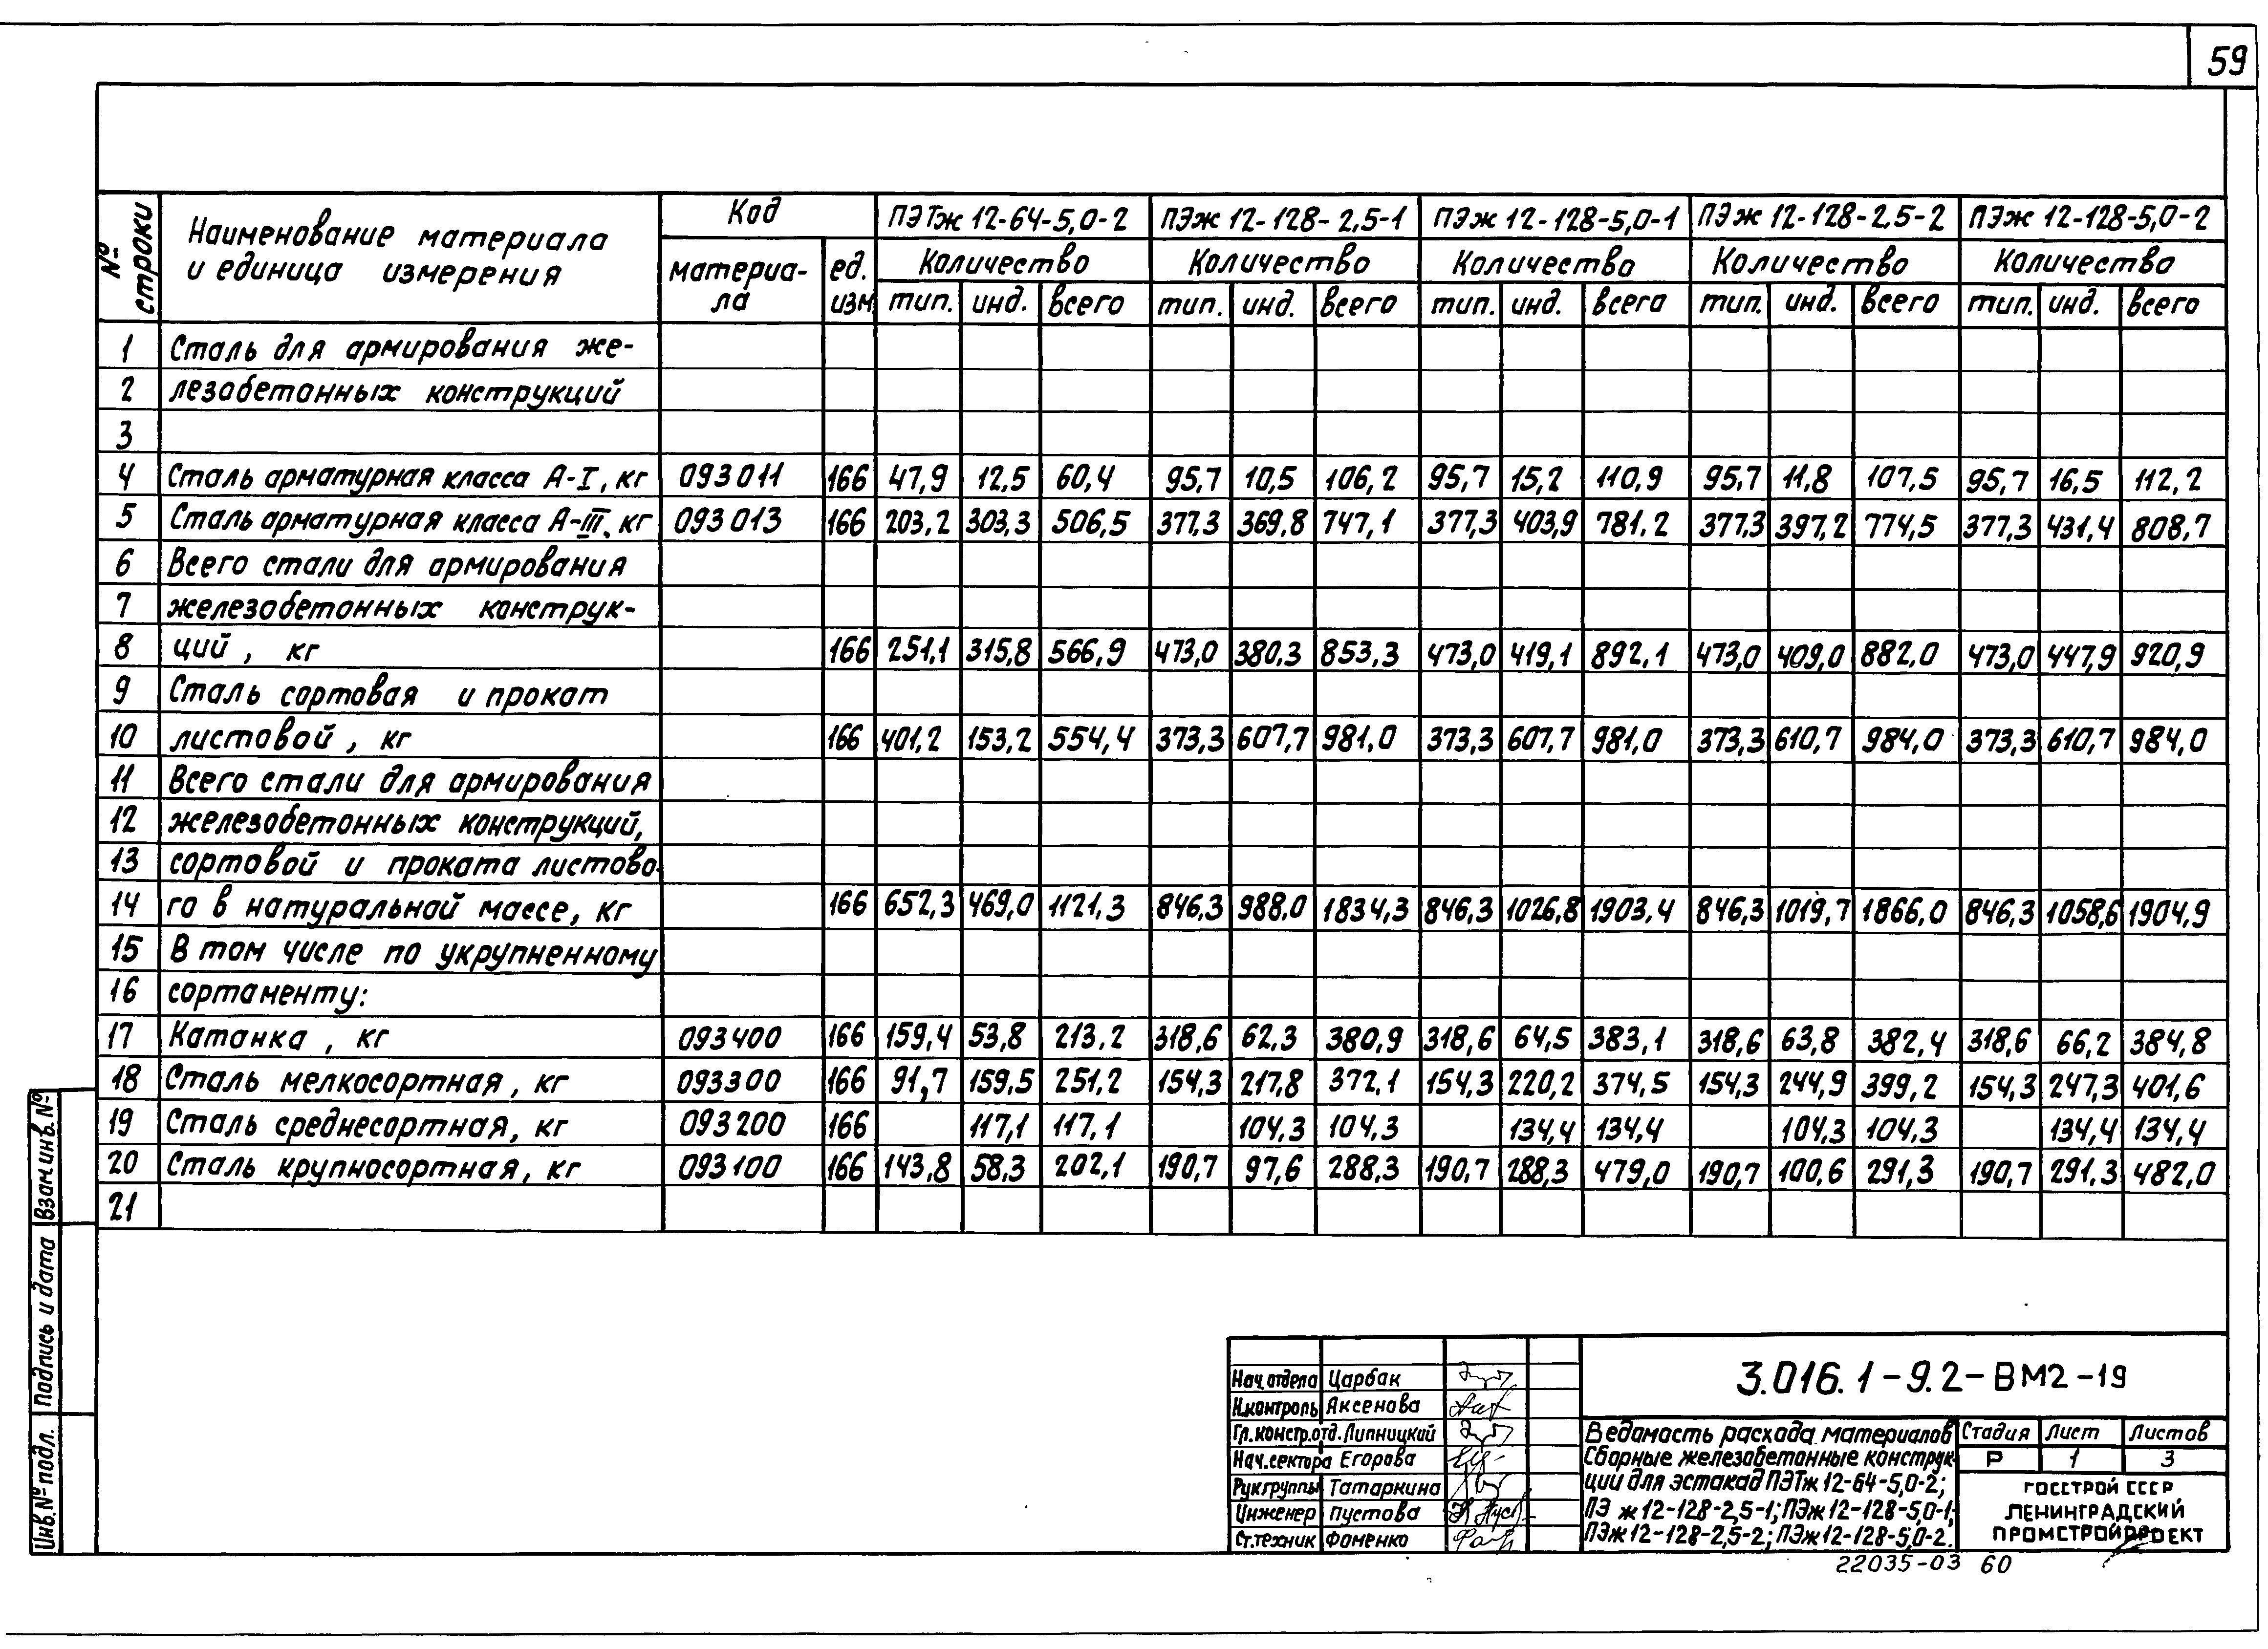 59
№ строки
Наименование материала и единица измерения
Код
ПЭТж 12-64-5,0-2 ПЭж 12-128-2,5-1 ПЭж 12-128-5,0-1 ПЭж 12-128-2,5-2 ПЭж 12-128-5,0-2
материа-ла ед. изм. Количество Количество Количество Количество Количество
тип. инд. всего тип. инд. всего тип. инд. всего тип. инд. всего тип. инд. всего
1 Сталь для армирования же-
2 лезобетонных конструкций
3
4 Сталь арматурная класса А-I, кг 093011 166 47,9 12,5 60,4 95,7 10,5 106,2 95,7 15,2 110,9 95,7 11,8 107,5 95,7 16,5 112,2
5 Сталь арматурная класса А-III, кг 093013 166 203,2 303,3 506,5 377,3 369,8 747,1 377,3 403,9 781,2 377,3 397,2 774,5 377,3 431,4 808,7
6 Всего стали для армирования
7 железобетонных конструк-
8 ций, кг 166 251,1 315,8 566,9 473,0 380,3 853,3 473,0 419,1 892,1 473,0 409,0 882,0 473,0 447,9 920,9
9 Сталь сортовая и прокат
10 листовой, кг 166 401,2 153,2 554,4 373,3 607,7 981,0 373,3 607,7 981,0 373,3 610,7 984,0 373,3 610,7 984,0
11 Всего стали для армирования
12 железобетонных конструкций,
13 сортовой и проката листово-
14 го в натуральной массе, кг 166 652,3 469,0 1121,3 846,3 988,0 1834,3 846,3 1026,8 1903,4 846,3 1019,7 1866,0 846,3 1058,6 1904,9
15 В том числе по укрупненному
16 сортаменту:
17 Катанка, кг 093400 166 159,4 53,8 213,2 318,6 62,3 380,9 318,6 64,5 383,1 318,6 63,8 382,4 318,6 66,2 384,8
18 Сталь мелкосортная, кг 093300 166 91,7 159,5 251,2 154,3 217,8 372,1 154,3 220,2 374,5 154,3 244,9 399,2 154,3 247,3 401,6
19 Сталь среднесортная, кг 093200 166 117,1 117,1 104,3 104,3 134,4 134,4 104,3 104,3 134,4 134,4
20 Сталь крупносортная, кг 093100 166 143,8 58,3 202,1 190,7 97,6 288,3 190,7 288,3 479,0 190,7 100,6 291,3 190,7 291,3 482,0
21
Взам.инв.№
Подпись и дата
Инв.№ подл.
Нач.отдела Царбак
Н.контроль Аксенова
Гл.констр.отд. Липницкий
Нач.сектора Егорова
Рук.группы Татаркина
Инженер Пустова
Ст.техник Фоменко
3.016.1-9.2-ВМ2-19
Ведомость расхода материалов
Сборные железобетонные конструк-
ции для эстакад ПЭТж 12-64-5,0-2;
ПЭж 12-128-2,5-1; ПЭж 12-128-5,0-1;
ПЭж 12-128-2,5-2; ПЭж 12-128-5,0-2.
Стадия Лист Листов
Р 1 3
ГОССТРОЙ СССР
ЛЕНИНГРАДСКИЙ
ПРОМСТРОЙПРОЕКТ
22035-03 60